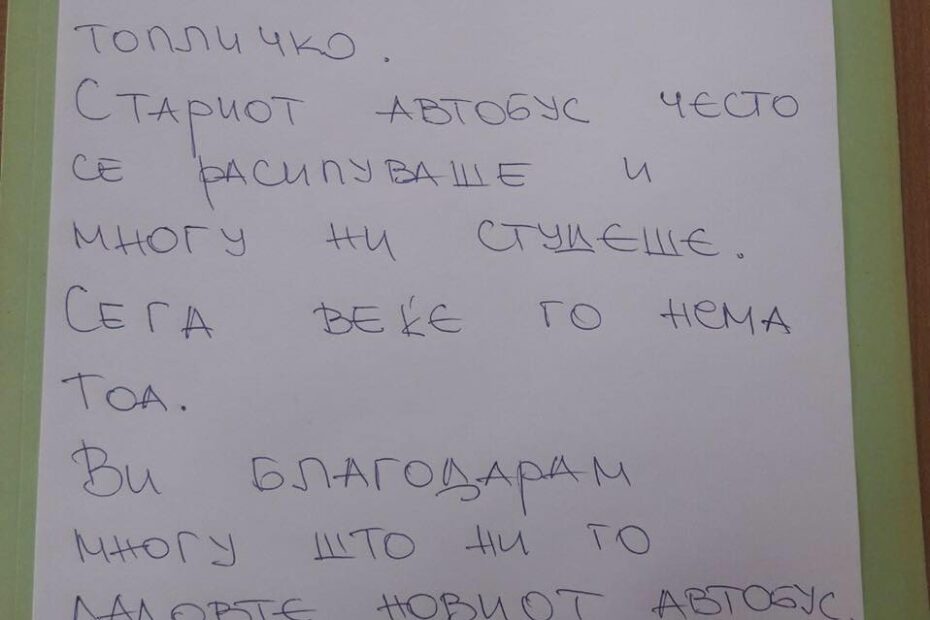 топличко.
Стариот автобус често
се расипуваше и
многу ни студеше.
Сега веќе го нема
тоа.
Ви благодарам
многу што ни го
дадовте новиот автобус.